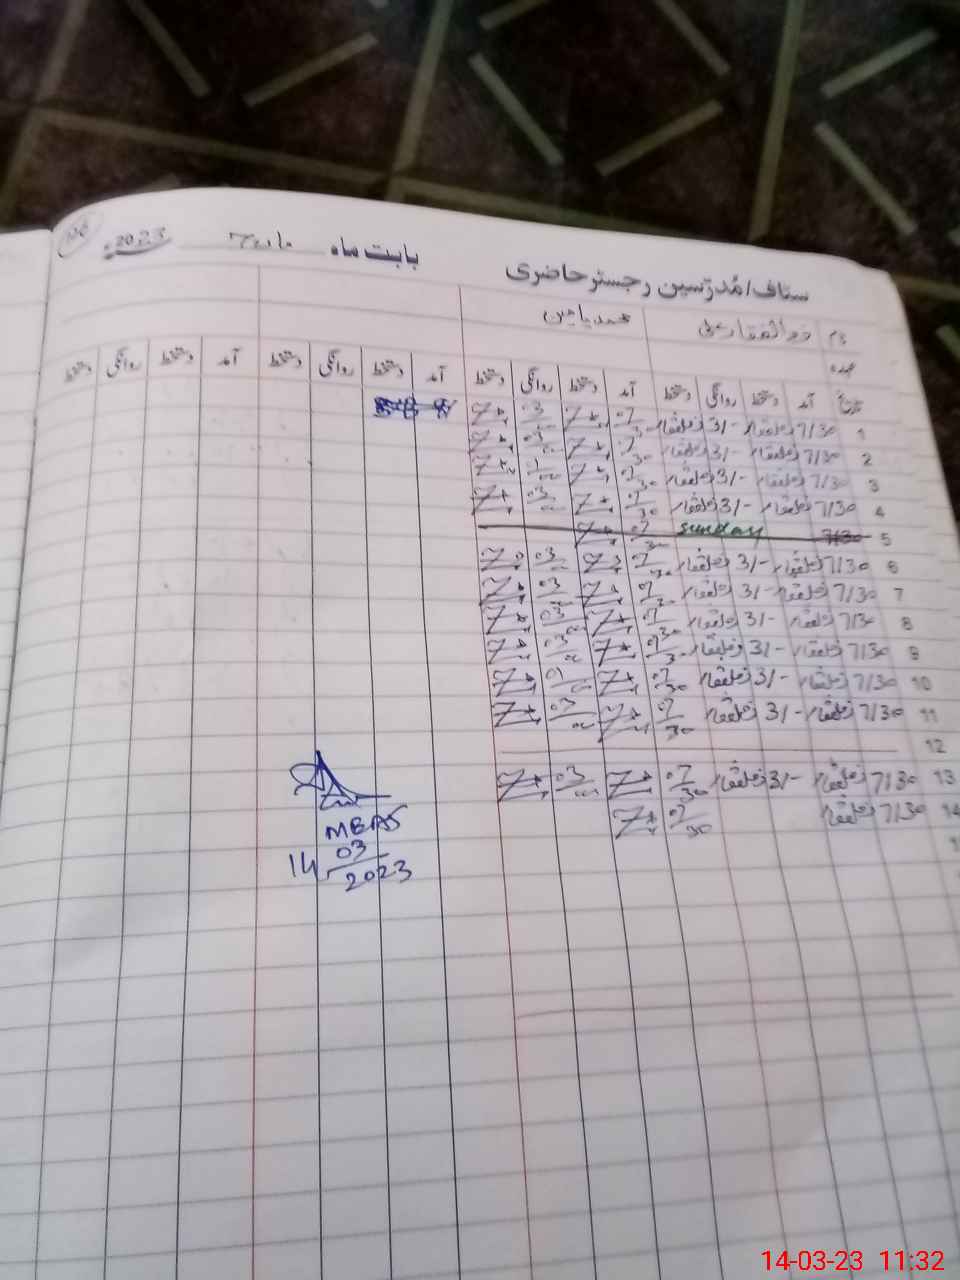 سٹاف/مُدرّسین رجسٹر حاضری بابت ماہ مارچ 2023ء
نام ذوالفقار علی محمد یامین
عہدہ
تاریخ آمد دستخط روانگی دستخط آمد دستخط روانگی دستخط آمد دستخط روانگی دستخط آمد دستخط روانگی دستخط
1 7/30 ذولفقار 3/- ذولفقار 07/30 03/00
2 7/30 ذولفقار 3/- ذولفقار 07/30 03/00
3 7/30 ذولفقار 3/- ذولفقار 07/30 03/00
4 7/30 ذولفقار 3/- ذولفقار 07/30 03/00
5 7/30 Sunday 07/30
6 7/30 ذولفقار 3/- ذولفقار 07/30 03/00
7 7/30 ذولفقار 3/- ذولفقار 07/30 03/00
8 7/30 ذولفقار 3/- ذولفقار 07/30 03/00
9 7/30 ذولفقار 3/- ذولفقار 07/30 03/00
10 7/30 ذولفقار 3/- ذولفقار 07/30 03/00
11 7/30 ذولفقار 3/- ذولفقار 07/30 03/00
12
13 7/30 ذولفقار 3/- ذولفقار 07/30 03/00
14 7/30 ذولفقار 07/30
MEAS
14/03/2023
14-03-23 11:32